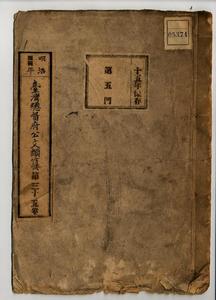 明治
臺灣總督府公文類纂第三十五卷
十五年保存
第五門
05374